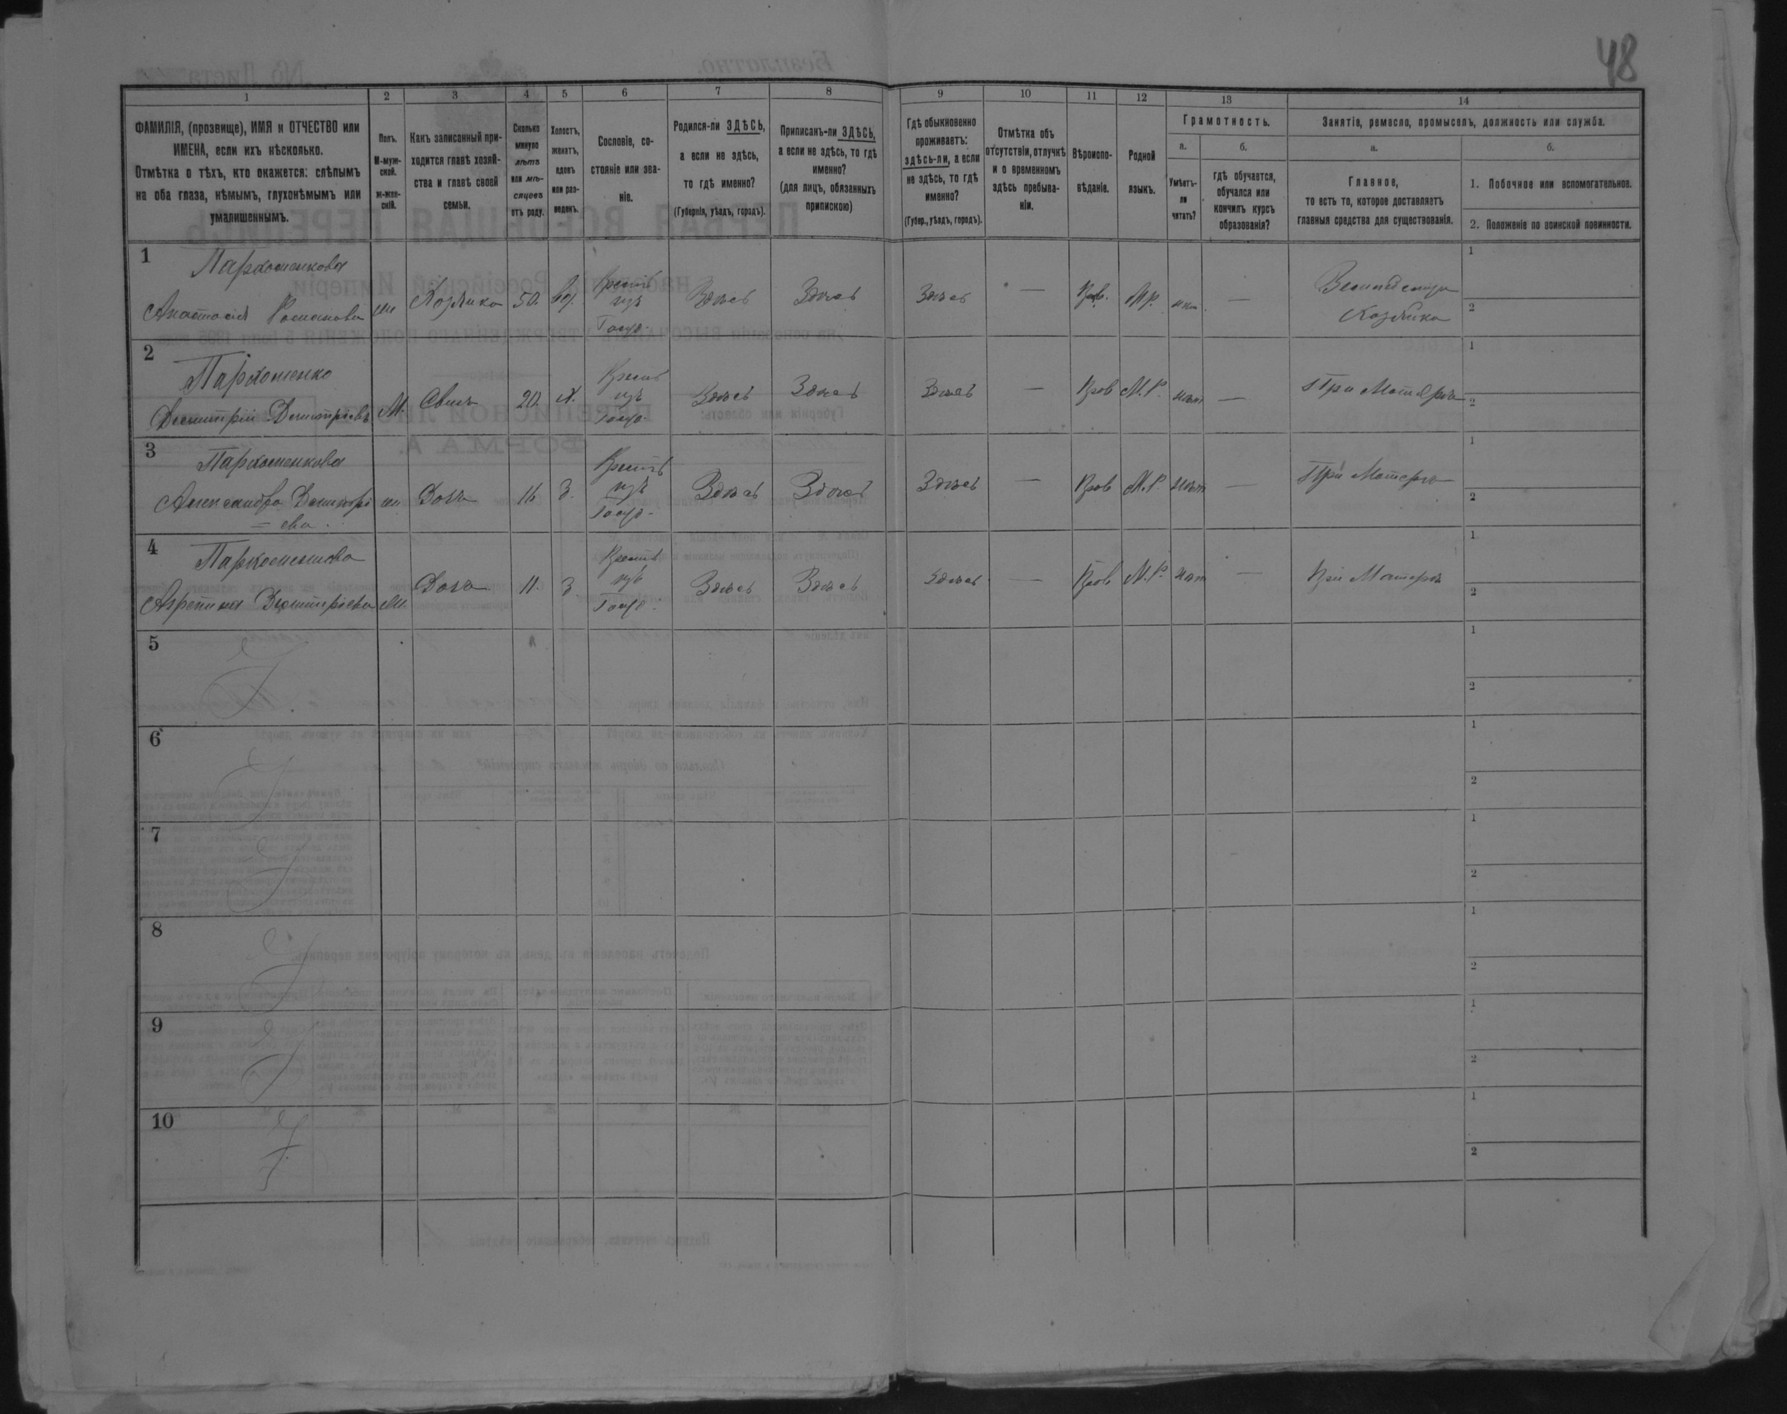 48
1
2
3
4
5
6
7
8
9
10
11
12
13
14
ФАМИЛІЯ, (прозвище), ИМЯ и ОТЧЕСТВО или
ИМЕНА, если ихъ нѣсколько.
Отмѣтка о тѣхъ, кто окажется: слѣпымъ
на оба глаза, нѣмымъ, глухонѣмымъ или
умалишеннымъ.
Полъ.
М-муж-
ской.
ж-жен-
скій.
Какъ записанный при-
ходится главѣ хозяй-
ства и главѣ своей
семьи.
Сколько
минуло
лѣтъ
или мѣ-
сяцевъ
отъ роду.
Холостъ,
женатъ,
вдовъ
или раз-
веденъ.
Сословіе, со-
стояніе или зва-
ніе.
Родился-ли ЗДѢСЬ,
а если не здѣсь,
то гдѣ именно?
(Губернія, уѣздъ, городъ).
Приписанъ-ли ЗДѢСЬ,
а если не здѣсь, то гдѣ
именно?
(для лицъ, обязанныхъ
припискою)
Гдѣ обыкновенно
проживаетъ:
здѣсь-ли, а если
не здѣсь, то гдѣ
именно?
(Губер., уѣздъ, городъ).
Отмѣтка объ
отсутствіи, отлучкѣ
и о временномъ
здѣсь пребыва-
ніи.
Вѣроиспо-
вѣданіе.
Родной
языкъ.
Грамотность.
а.
Умѣетъ-
ли
читать?
б.
гдѣ обучается,
обучался или
кончилъ курсъ
образованія?
Занятіе, ремесло, промыселъ, должность или служба.
а.
Главное,
то есть то, которое доставляетъ
главныя средства для существованія.
б.
1. Побочное или вспомогательное.
2. Положеніе по воинской повинности.
1
Пархоменкова
Анастасія Романова
ж
Хозяйка
50
Вд.
Крест.
изъ
Госуд.
Здѣсь
Здѣсь
Здѣсь
—
Прав.
М.р.
нѣт
—
Хозяйка
1
2
2
Пархоменко
Дмитрій Дмитріевъ
М.
Сынъ
20
х.
Крест.
изъ
Госуд.
Здѣсь
Здѣсь
Здѣсь
—
Прав
М.Р.
нѣт
—
При Матери
1
2
3
Пархоменкова
Александра Дмитрі
=ева
ж
Дочь
16
Крест.
изъ
Госуд.
Здѣсь
Здѣсь
Здѣсь
—
Прав
М.Р
нѣт
—
При Матери
1
2
4
Пархоменкова
Дмитріева
ж.
Дочь
11.
Крест.
изъ
Госуд.
Здѣсь
Здѣсь
Здѣсь
—
Прав
М.Р.
нѣт
—
При Матери
1
2
5
1
2
6
1
2
7
1
2
8
1
2
9
1
2
10
1
2